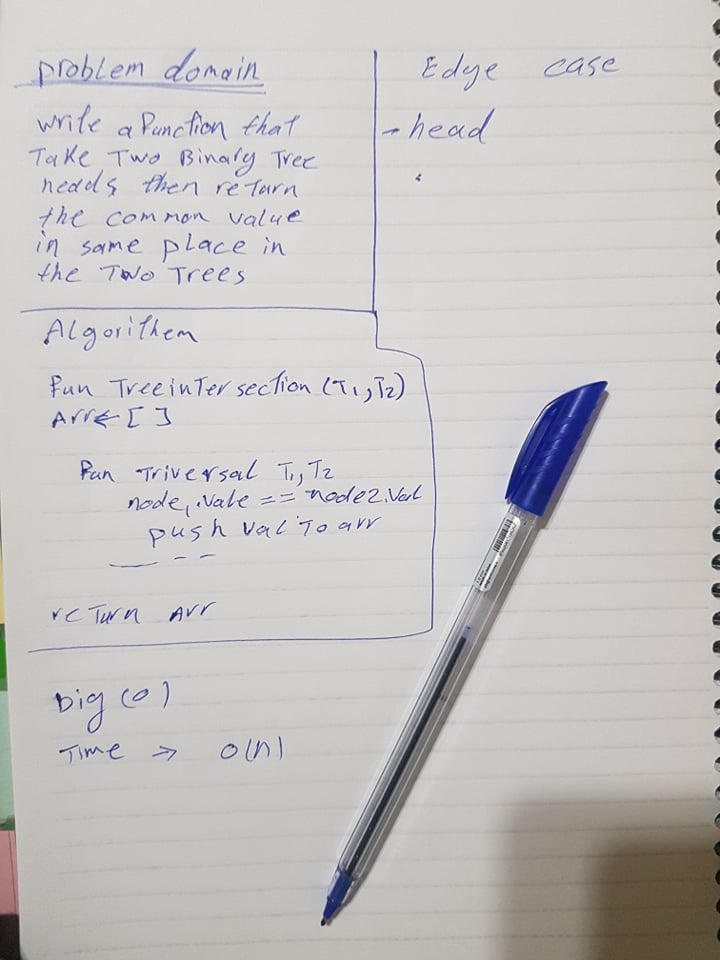 problem domain
write a function that
Take Two Binary Tree
heads then return
the common value
in same place in
the Two Trees
Edge case
- head
Algorithem
Fun Treeintersection (T1, T2)
Arr ← [ ]
Fun Triversal T1, T2
node1.vale == node2.val
push val To arr
return Arr
big (o)
Time → O(n)